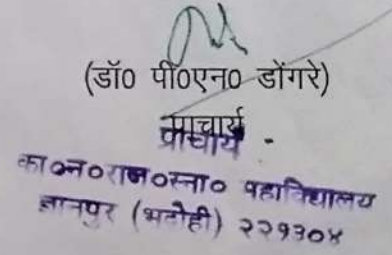 (डॉ0 पी0एन0 डोंगरे)
प्राचार्य
प्राचार्य -
का०न०राज०स्ना० महाविद्यालय
ज्ञानपुर (भदोही) २२१३०४